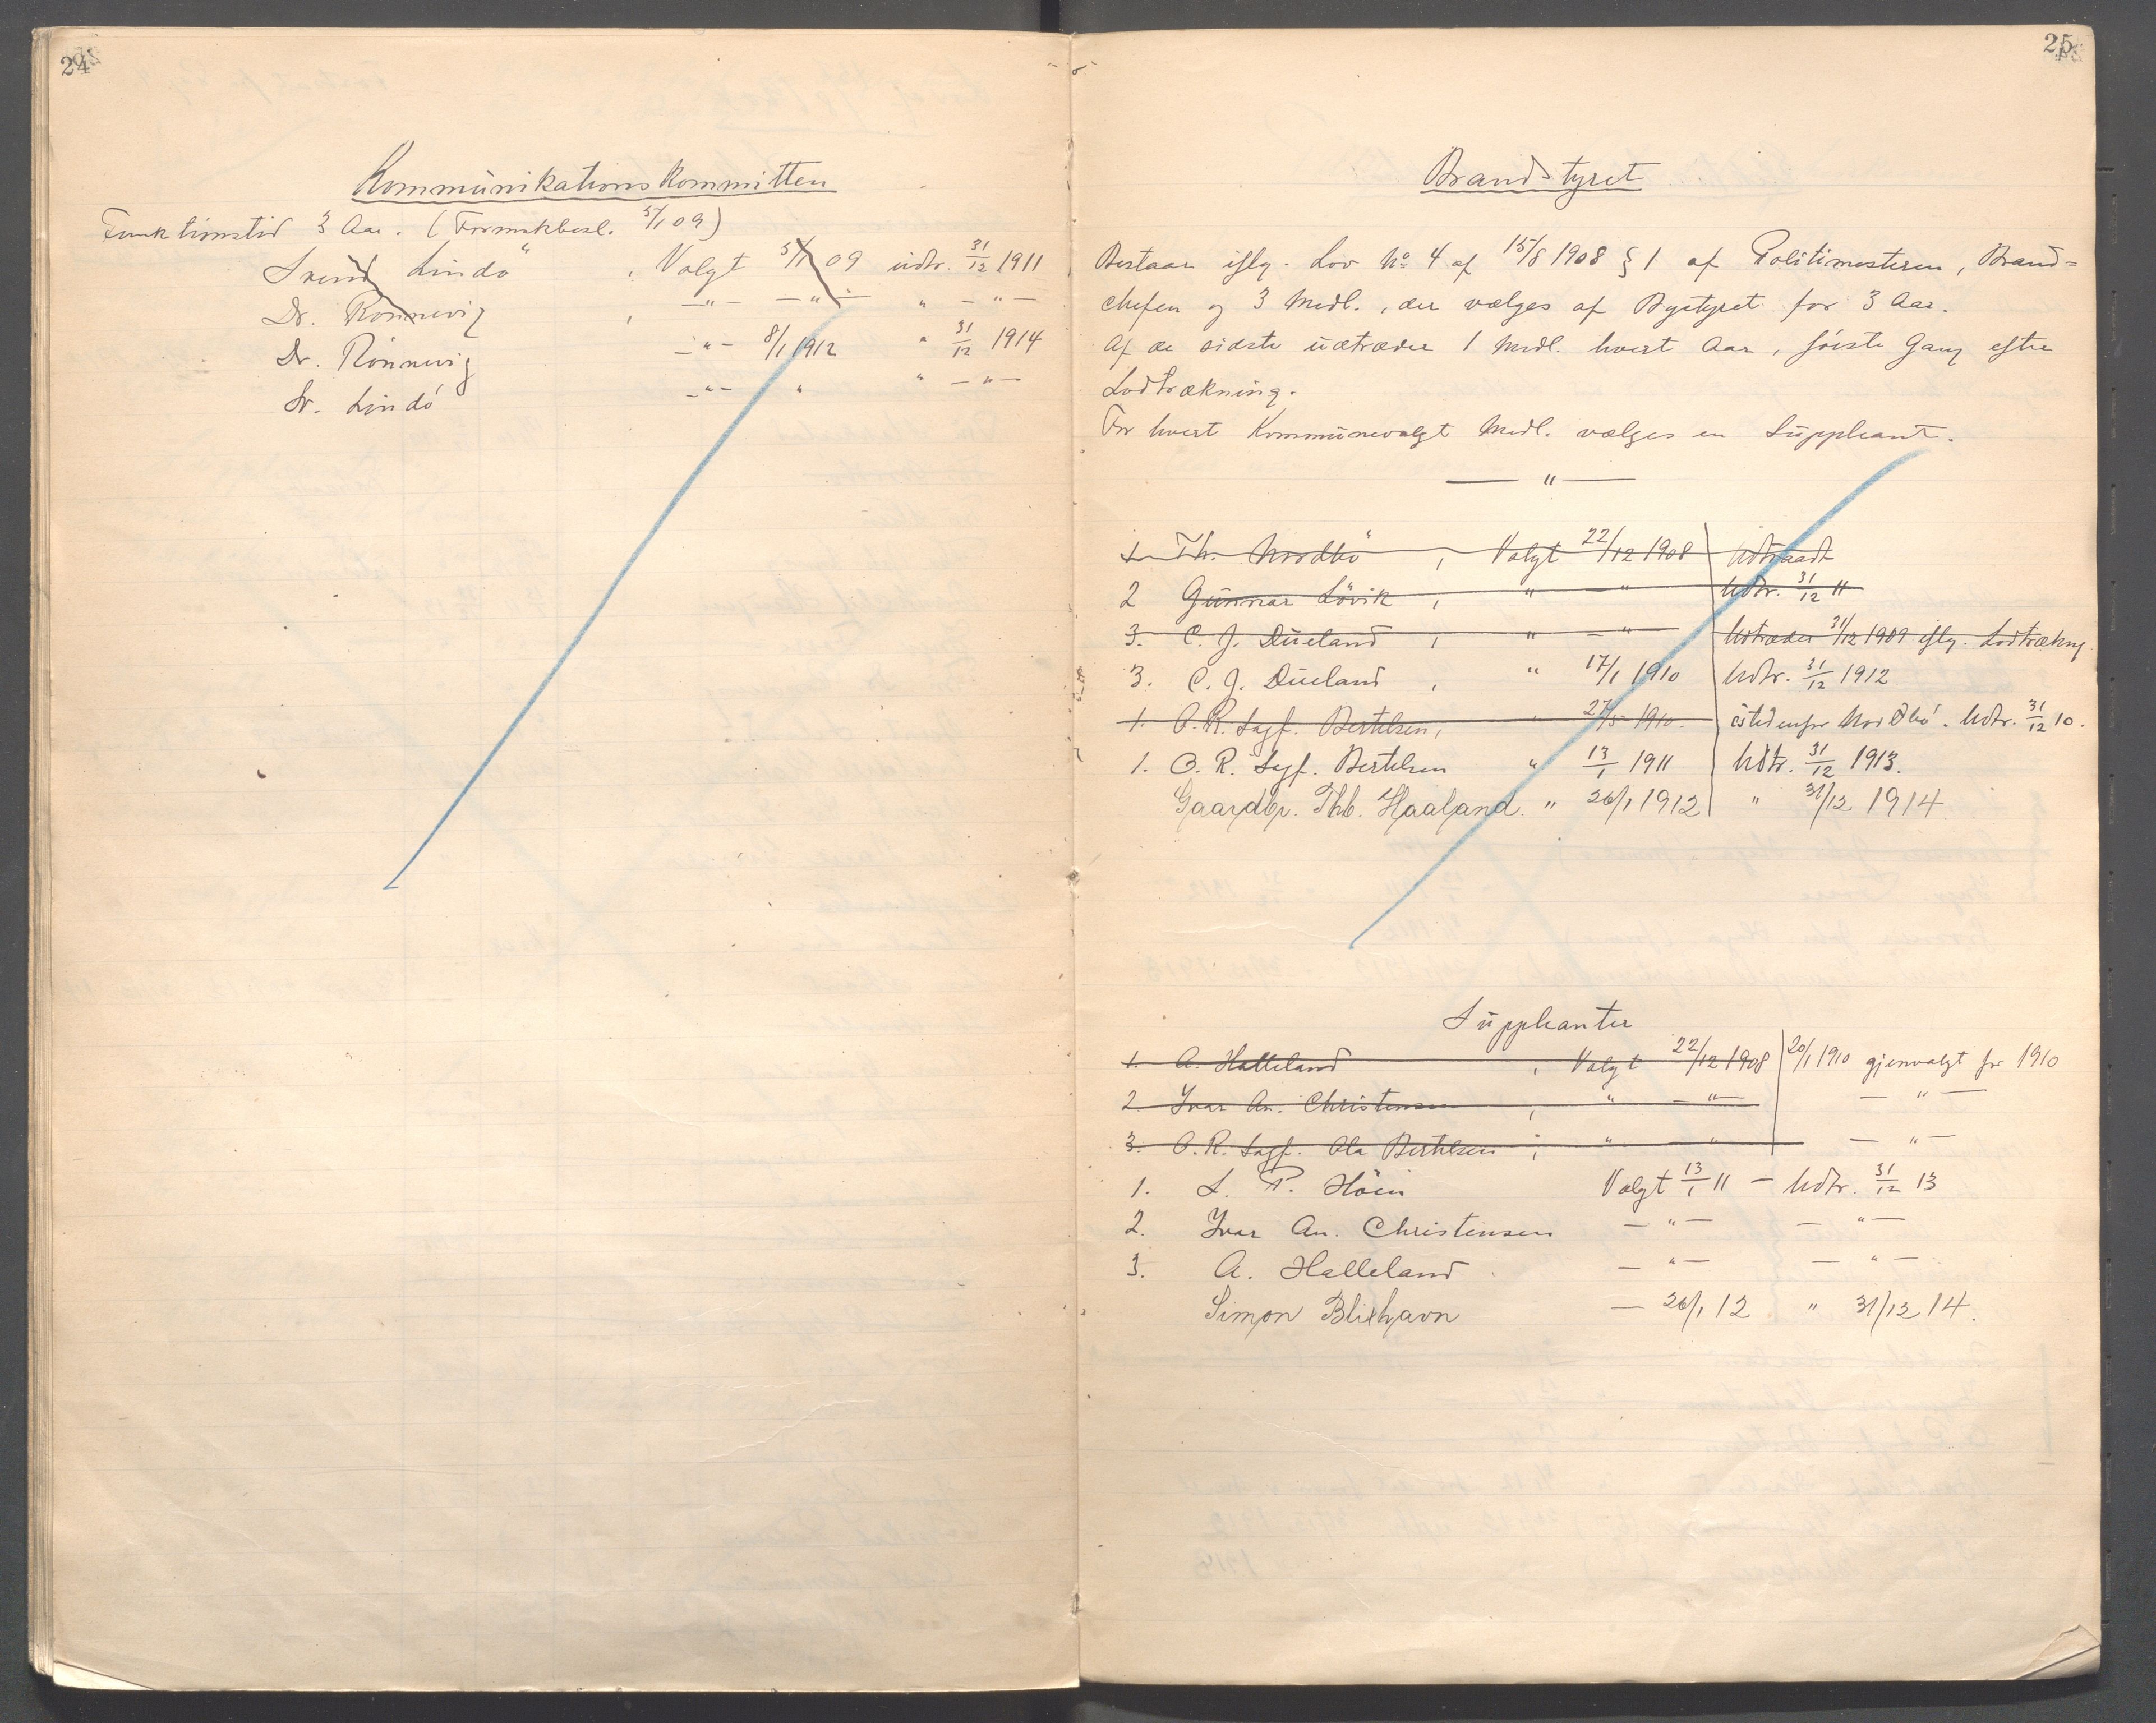 24
Kommunikationskommitten
Funktionstid 3 Aar. (Formskbesl. 5/1 09)
Svend Lindö, Valgt 5/1 09 udtr. 31/12 1911
Dr. Rönnevig, —"— —"— " —"—
Dr. Rönnevig —"— 8/1 1912 " 31/12 1914
Sv. Lindö —"— " " —"—
25
Brandstyret
Bestaar iflg. Lov No 4 af 15/8 1908 § 1 af Politimesteren, Brand=
chefen og 3 Medl., der vælges af Bystyret for 3 Aar.
Af de sidste udtræder 1 Medl. hvert Aar, første Gang efter
Lodtrækning.
For hvert Kommunevalgt Medl. vælges en Suppleant.
— " —
1. Th. Nordbö, Valgt 22/12 1908 Udtraadt
2 Gunnar Lövik, " —" Udtr. 31/12 11
3. C. J. Dueland, " —" Udtræder 31/12 1909 iflg. Lodtrækng.
3. C. J. Dueland, " 17/1 1910 Udtr. 31/12 1912
1. O. R. Sagf. Bertelsen, " 27/5 1910 istedenfor Nordbö. Udtr. 31/12 10.
1. O. R. Sagf. Bertelsen " 13/1 1911 Udtr. 31/12 1913.
Gaardbr. Thb. Haaland. " 26/1 1912 " 31/12 1914
Suppleanter
1. A. Halleland, Valgt 22/12 1908 20/1 1910 gjenvalgt for 1910
2. Ivar An. Christensen, " —"— — " —
3. O. R. Sagf. Ola Bertelsen, " — " — " —
1. L. P. Höie Valgt 13/1 11 — Udtr. 31/12 13
2. Ivar An. Christensen — " — — " —
3. A. Halleland — " — — " —
Simon Blikhavn — 26/1 12 " 31/12 14.